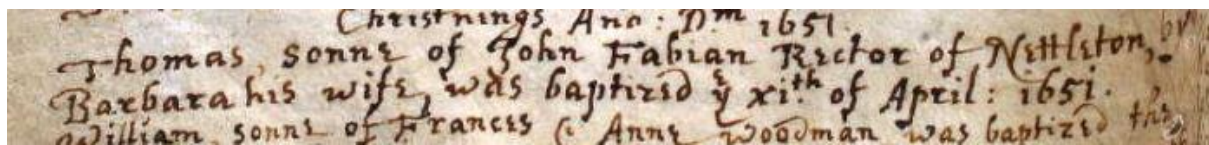 Christnings Ano: Dm 1651.
Thomas, sonne of John Fabian Rector of Nettleton, by
Barbara his wife, was baptized ye xith of April: 1651.
William, sonne of Frances & Anne Woodman was baptized the